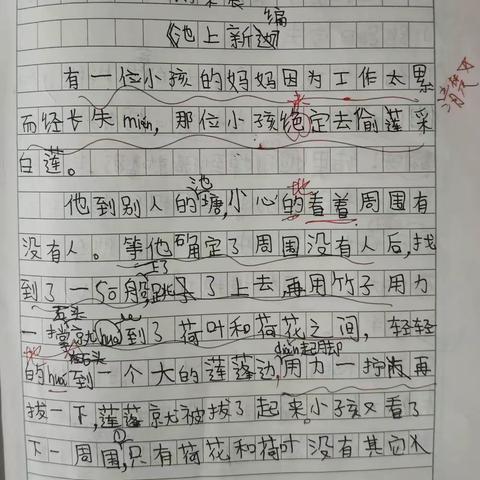 编
《池上新边》
有一位小孩的妈妈因为工作太累
而经长失mián，那位小孩绝定去偷莲采
白莲。
池 地
他到别人的塘，小心的看着周围有
没有人。等他确定了周围没有人后，找
到了一so船跳了上去，再用竹子用力
石头
一撑就hua到了荷叶和荷花之间，轻轻
地 diǎn起脚
的hua到一个大的莲蓬边，用力一拧，再
拔一下，莲蓬就被拔了起来。小孩又看了
下一周围，只有荷花和荷叶没有其它人